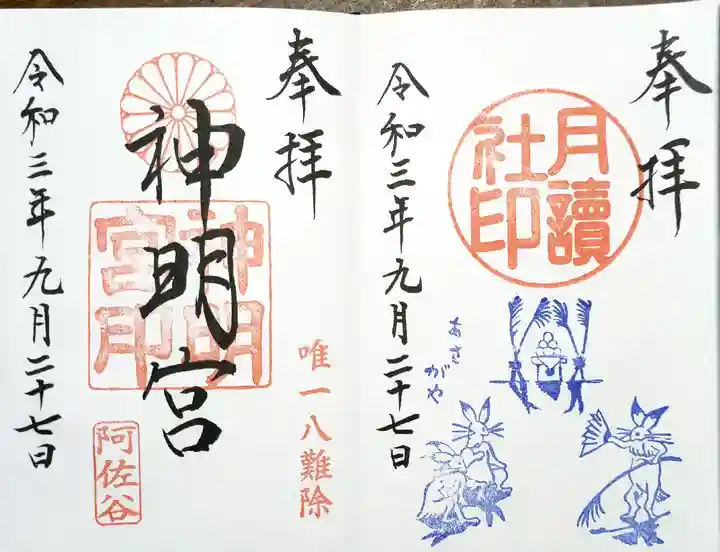 奉拝
月讀
社印
あさ
がや
令和三年九月二十七日
奉拝
唯一八難除
神明宮
神明
宮印
阿佐谷
令和三年九月二十七日